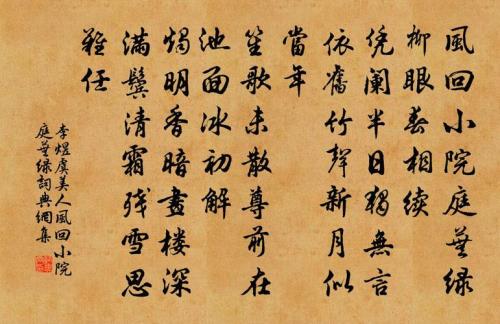 風回小院庭蕪綠
柳眼春相續
凭闌半日獨無言
依舊竹聲新月似
當年
笙歌未散尊前在
池面冰初解
燭明香暗畫樓深
滿鬢清霜殘雪思
難任
李煜虞美人風回小院
庭蕪綠詞典網集